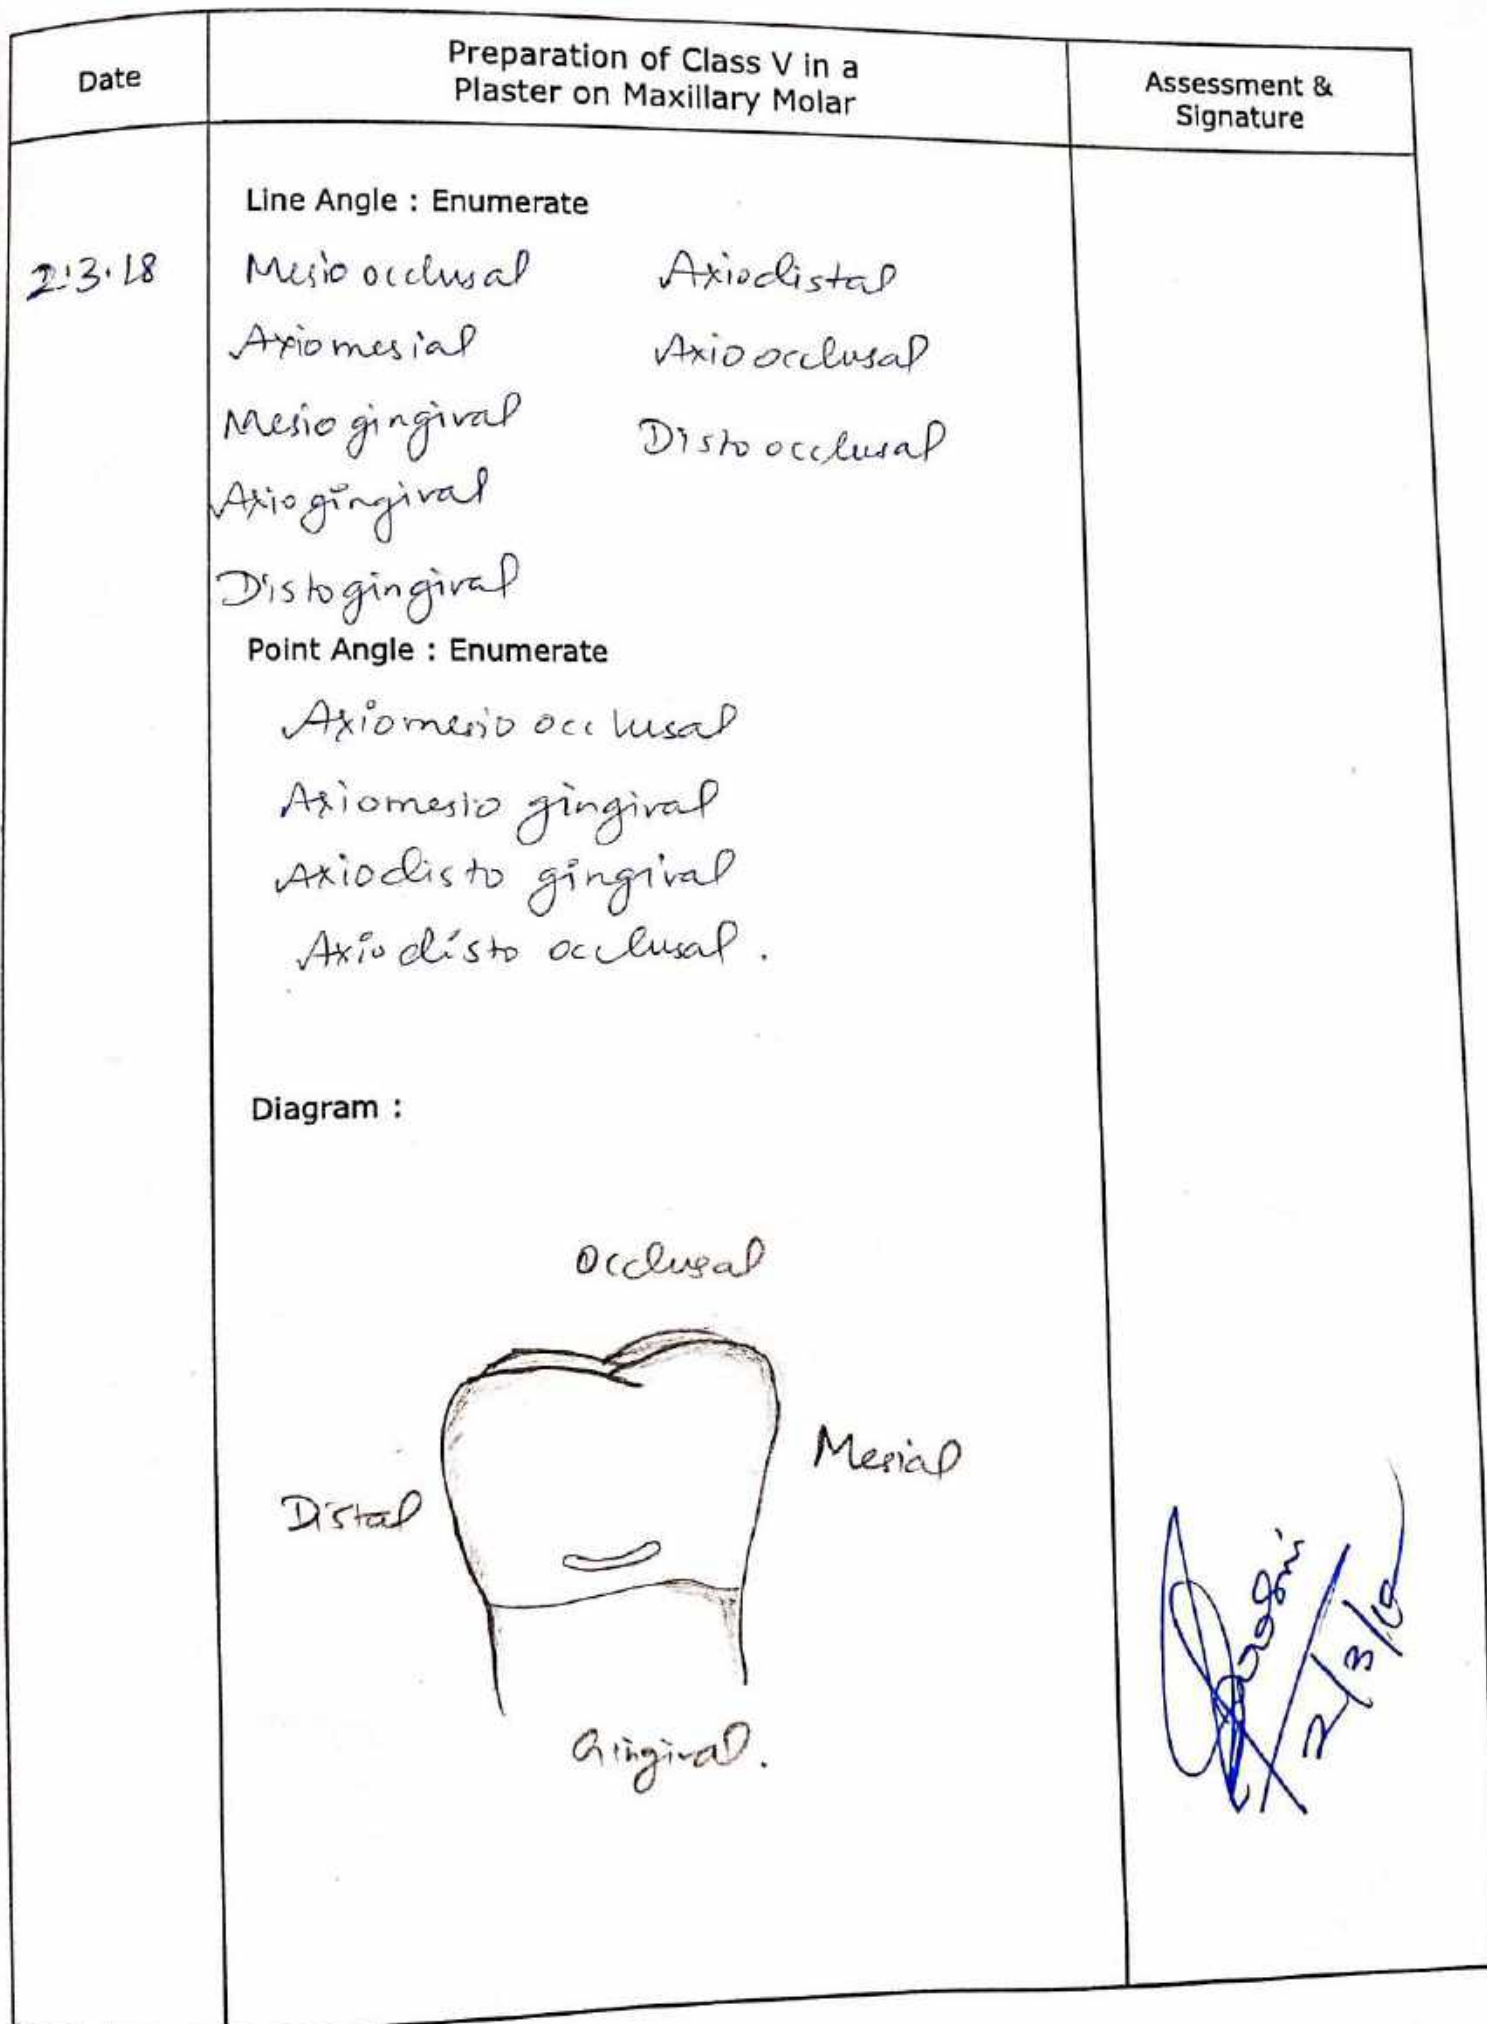 Date
Preparation of Class V in a
Plaster on Maxillary Molar
Assessment &
Signature
Line Angle : Enumerate
2.3.18
Mesio occlusal Axiodistal
Axiomesial Axio occlusal
Mesio gingival Disto occlusal
Axio gingival
Disto gingival
Point Angle : Enumerate
Axiomesio occlusal
Axiomesio gingival
Axiodisto gingival
Axio disto occlusal.
Diagram :
Occlusal
Mesial
Distal
Gingival.
2/3/18